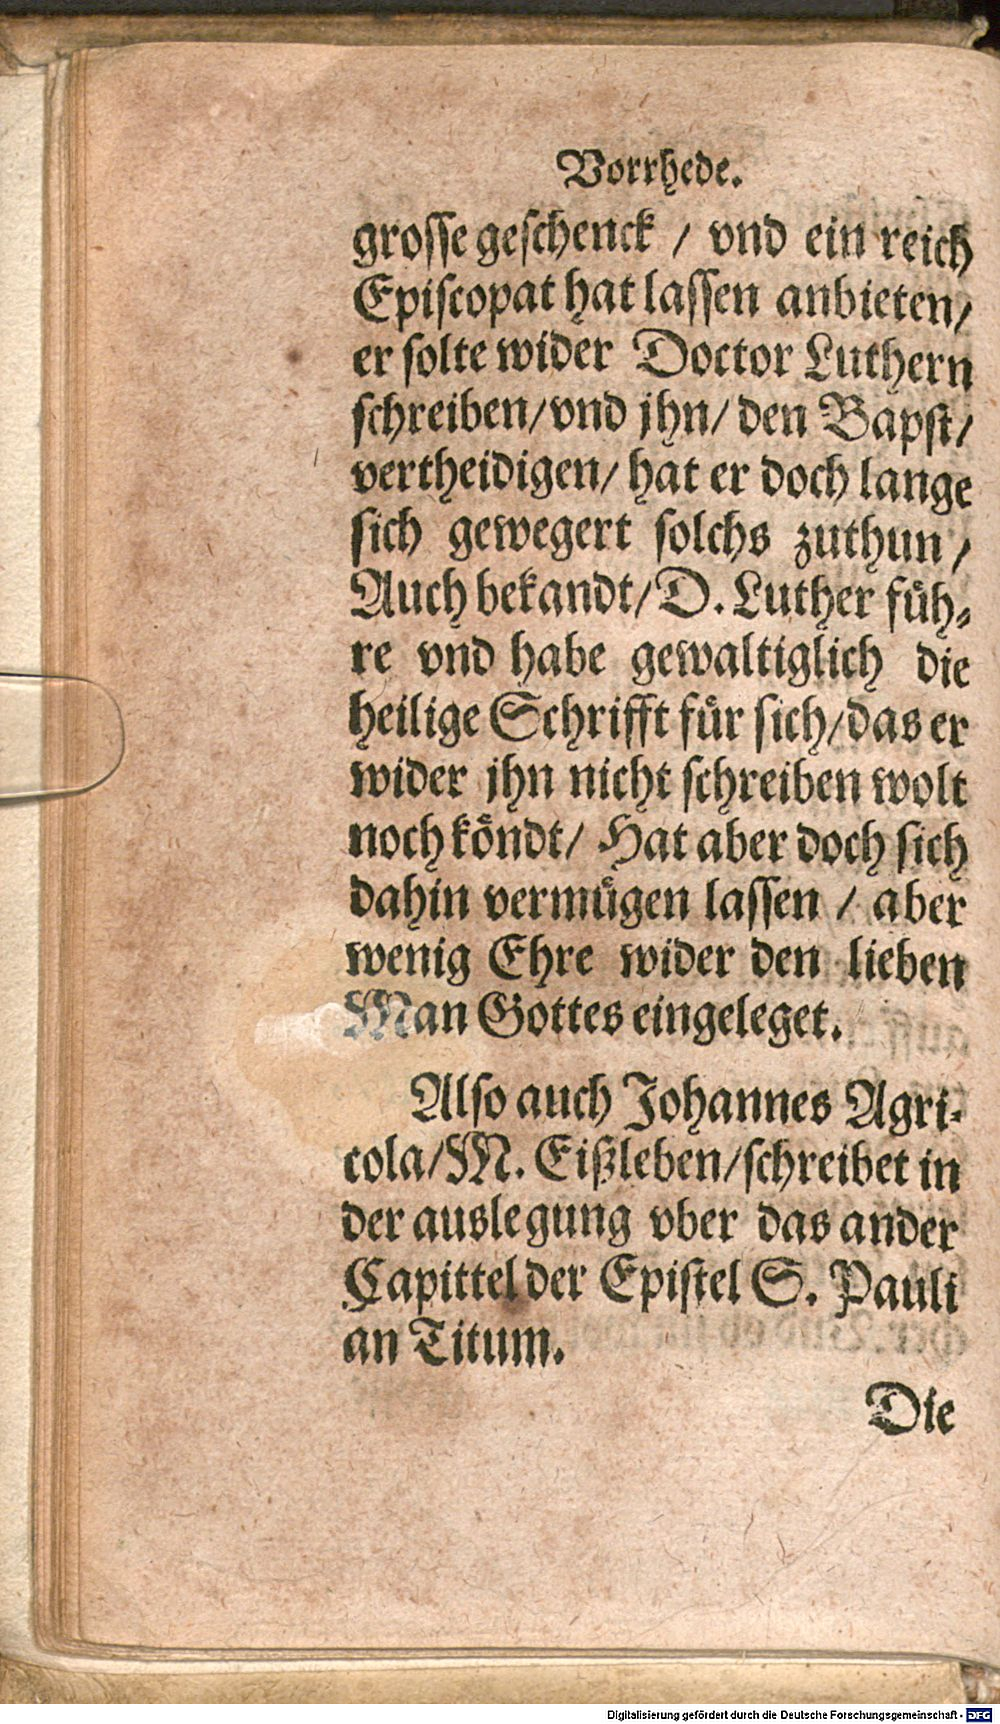 Vorrhede.
grosse geschenck / vnd ein reich
Episcopat hat lassen anbieten/
er solte wider Doctor Luthern
schreiben/vnd jhn/ den Bapst/
vertheidigen/ hat er doch lange
sich gewegert solchs zuthun /
Auch bekandt/ D. Luther füh-
re vnd habe gewaltiglich die
heilige Schrifft für sich/das er
wider jhn nicht schreiben wolt
noch köndt/ Hat aber doch sich
dahin vermügen lassen / aber
wenig Ehre wider den lieben
Man Gottes eingeleget.
Also auch Johannes Agri-
cola/M. Eißleben/schreibet in
der auslegung vber das ander
Capittel der Epistel S. Pauli
an Titum.
Die
Digitalisierung gefördert durch die Deutsche Forschungsgemeinschaft - DFG